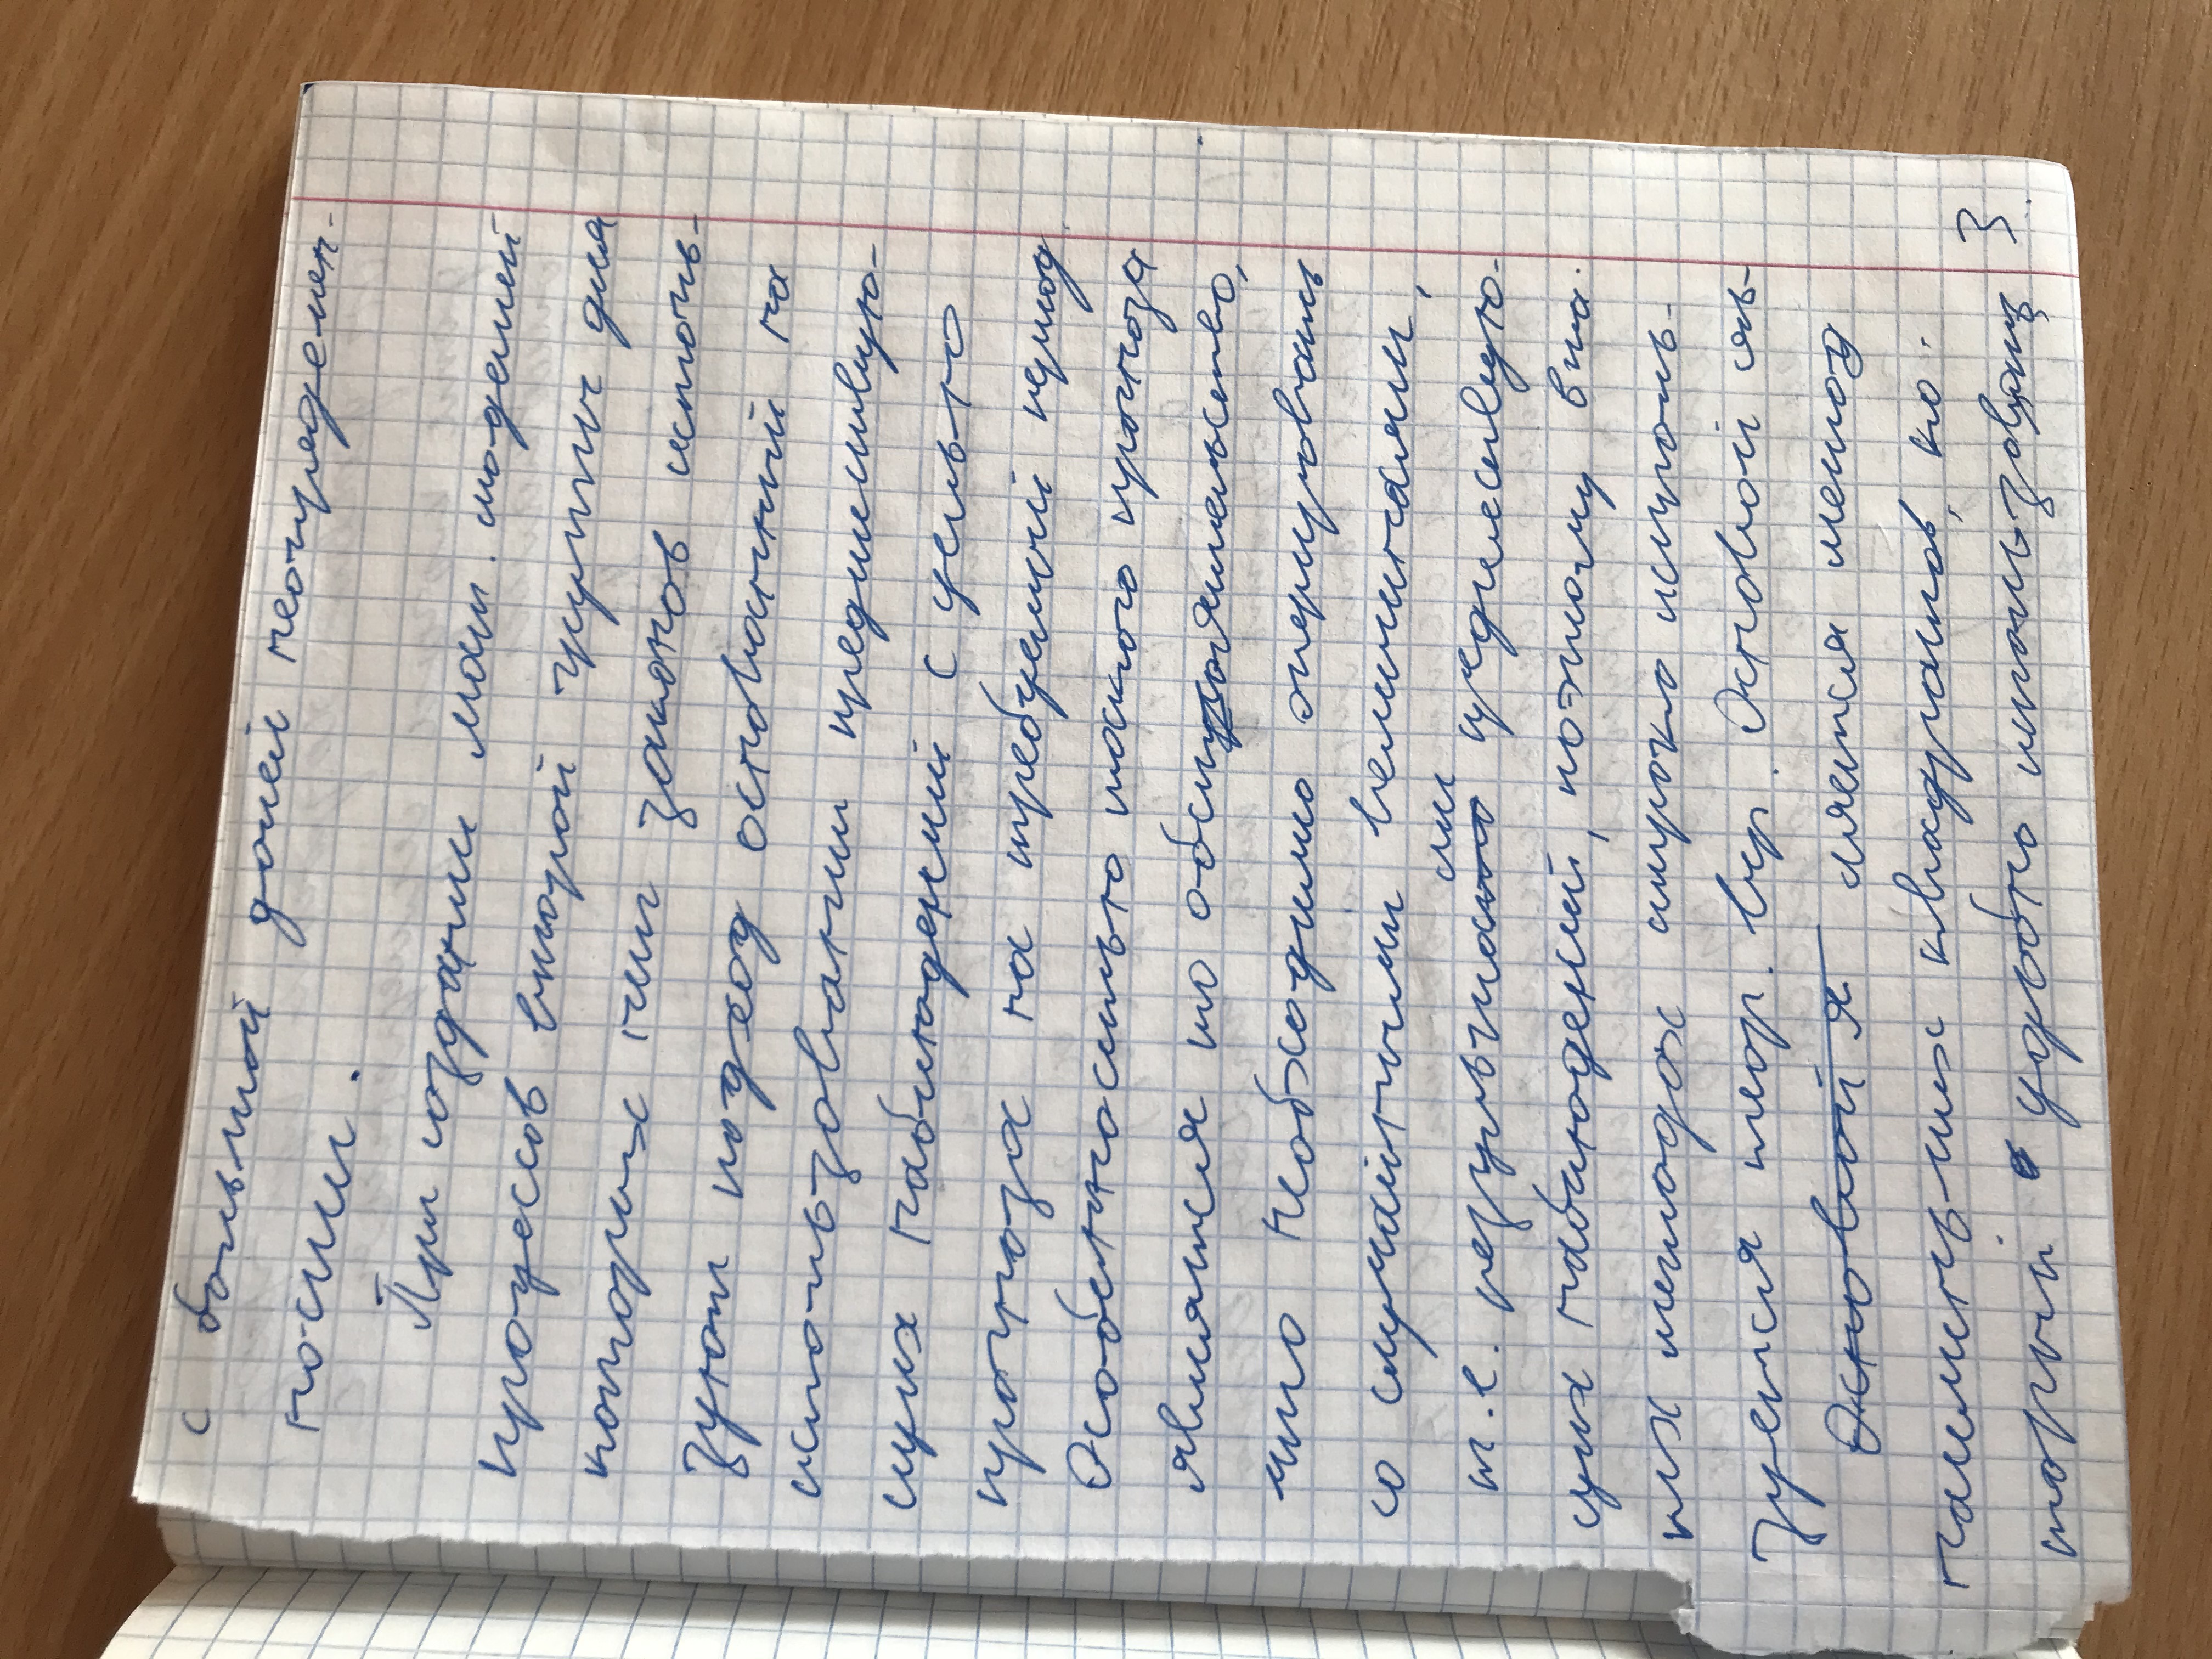 с большой долей неопределен-
ности.
При создании мат. моделей
процессов второй группы для
которых нет законов исполь-
зуют подход основанный на
использовании предшествую-
щих наблюдений с целью
прогноза на требуемый период.
Особенностью такого прогноза
является то обстоятельство,
что необходимо оперировать
со случайными величинами,
ми
т.е. результата предшествую-
щих наблюдений, поэтому в та-
ких методах широко исполь-
зуется теор. вер. Основой яв-
Основой я ляется метод
наименьших квадратов, ко-
торый удобно использовать 3.